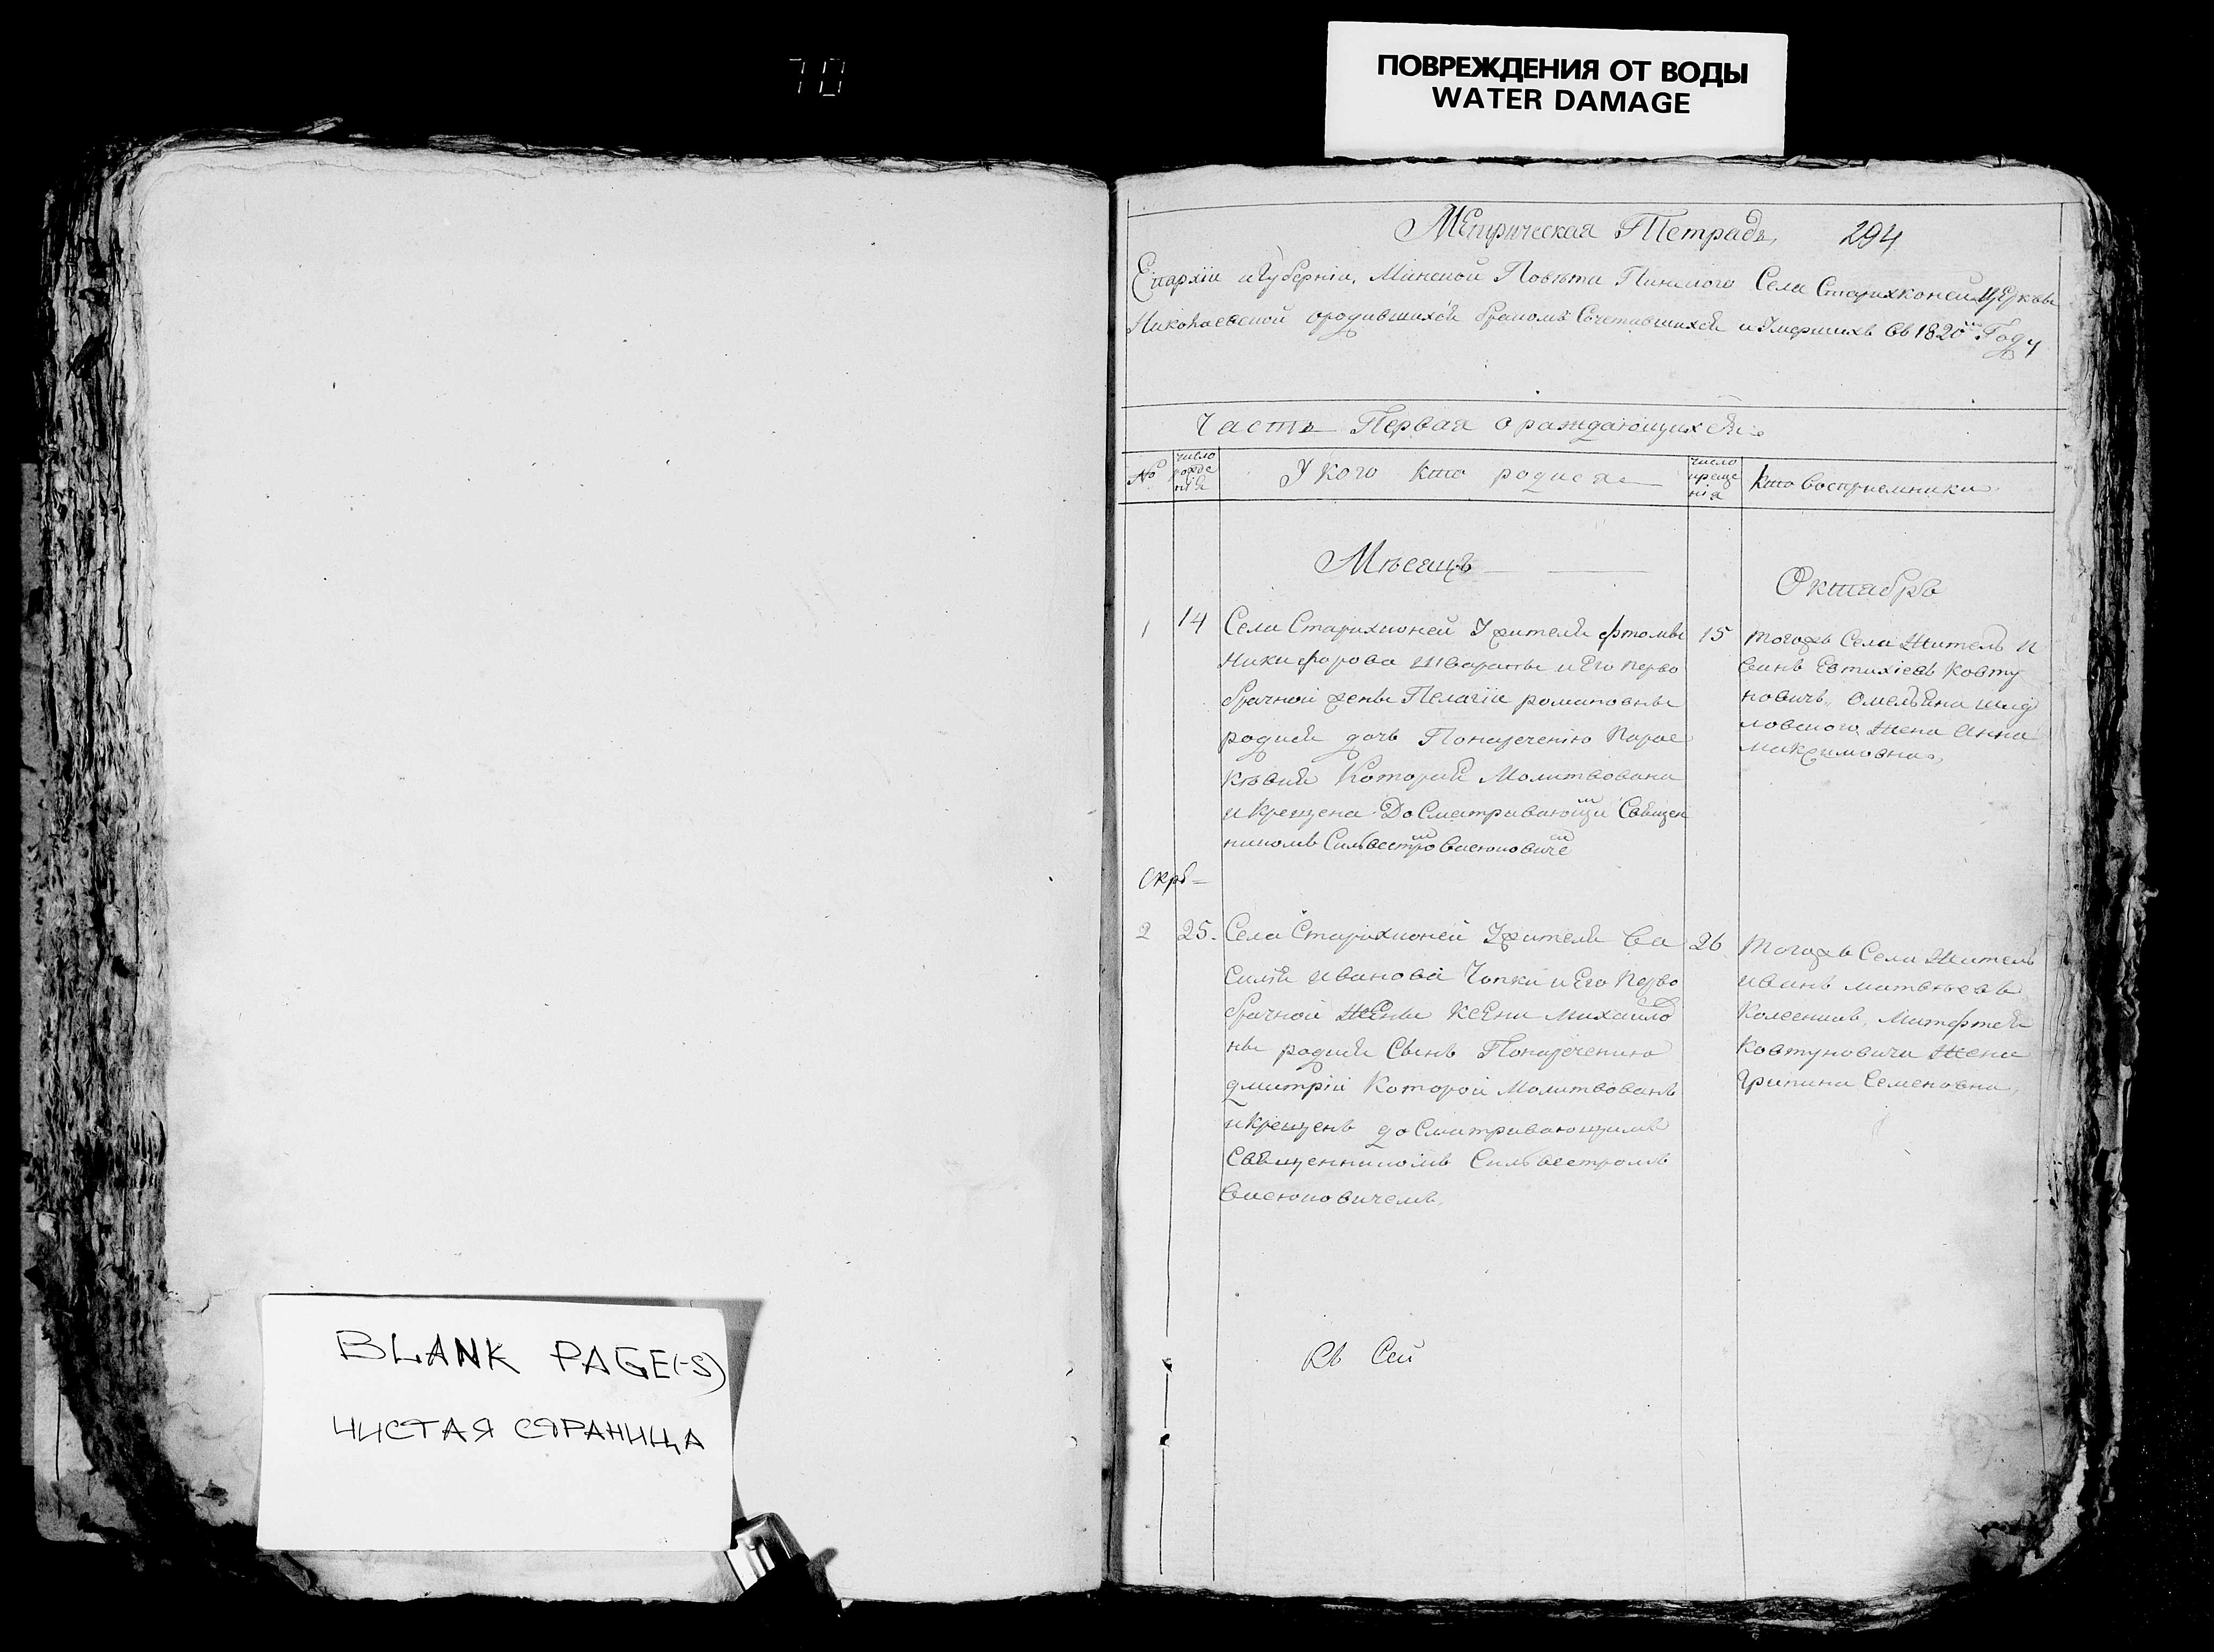 70
ПОВРЕЖДЕНИЯ ОТ ВОДЫ
WATER DAMAGE
Метрическая Тетрадь, 294
Епархiи и Губернiи, Минской Повѣта Пинского Села Старихконей Церкви
Николаевской ородившихся бракомъ Сочетавшихся и Умершихъ въ 1820мъ Году
Часть Первая о раждающихся
№ число рожденiя У кого кто родися число крещенiя кто восприемники
Мѣсяцъ Октябрь
1 14 Села Старихконей У жителя
Никифорова и Его перво
брачной жены Пелагiи романовны
родися дочь Понаречению Парас
кѣвия Которая Молитвована
и Крещена Досматривающимъ Священ
никомъ Силвестромъ
15 тогожъ Села Житель И
ванъ Евтихiевъ Ковту
новичъ, Омеляна Шид
ловского Жена Анна
Максимовна,
Окрб
2 25. Села Старихконей У жителя Ва
силiя Иванова Чопки и Его Перво
брачной Жены Ксени Михайло
ны родися Сынъ Понаречению
дмитрiй Которой Молитвованъ
и Крещенъ досматривающимъ
Священникомъ Силвестромъ
26 Тогожъ Села Житель
иванъ матвѣевъ
Колесникъ,
Ковтуновича Жена
Грипина Семеновна,
Въ Сей
BLANK PAGE(-S)
ЧИСТАЯ СТРАНИЦА